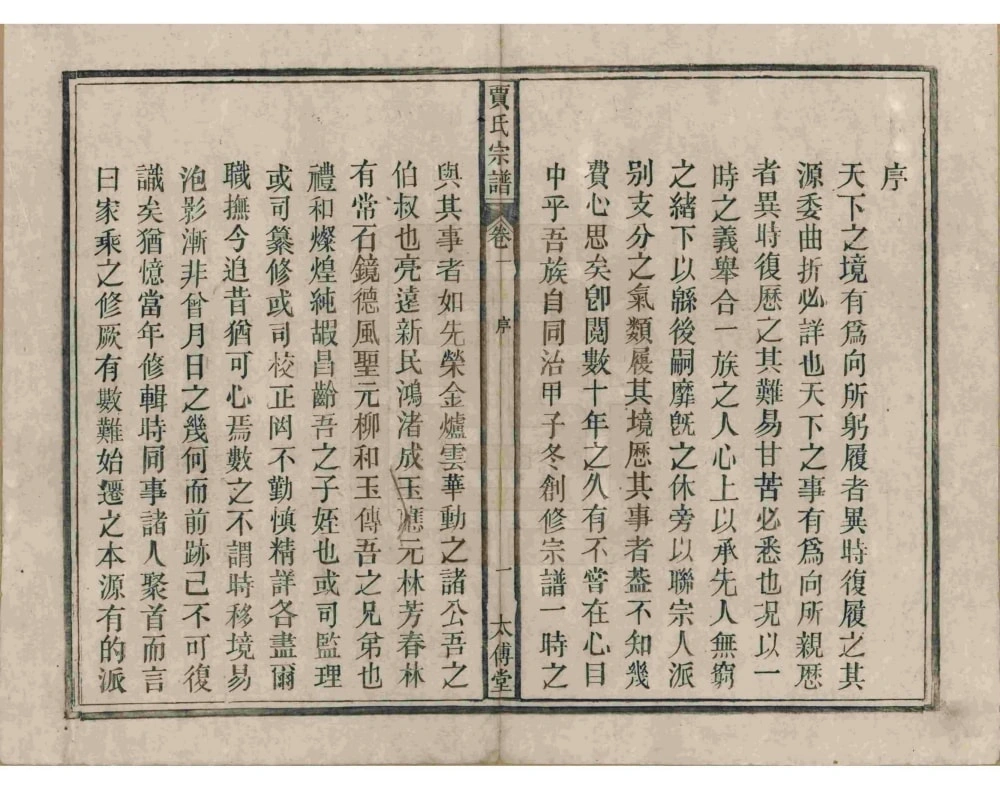 序
天下之境有爲向所躬履者異時復履之其
源委曲折必詳也天下之事有爲向所親歷
者異時復歷之其難易甘苦必悉也况以一
時之義舉合一族之人心上以承先人無窮
之緒下以緜後嗣靡旣之休旁以聯宗人派
别支分之氣類履其境歷其事者葢不知幾
費心思矣卽閱數十年之久有不嘗在心目
中乎吾族自同治甲子冬創修宗譜一時之
賈氏宗譜
卷一
序
一
太傅堂
與其事者如先榮金爐雲華動之諸公吾之
伯叔也亮遠新民鴻渚成玉應元林芳春林
有常石鏡德風聖元柳和玉傳吾之兄弟也
禮和燦煌純嘏昌齡吾之子姪也或司監理
或司纂修或司校正罔不勤慎精詳各盡爾
職撫今追昔猶可心焉數之不謂時移境易
泡影漸非曾月日之幾何而前跡已不可復
識矣猶憶當年修輯時同事諸人聚首而言
曰家乘之修厥有數難始遷之本源有的派